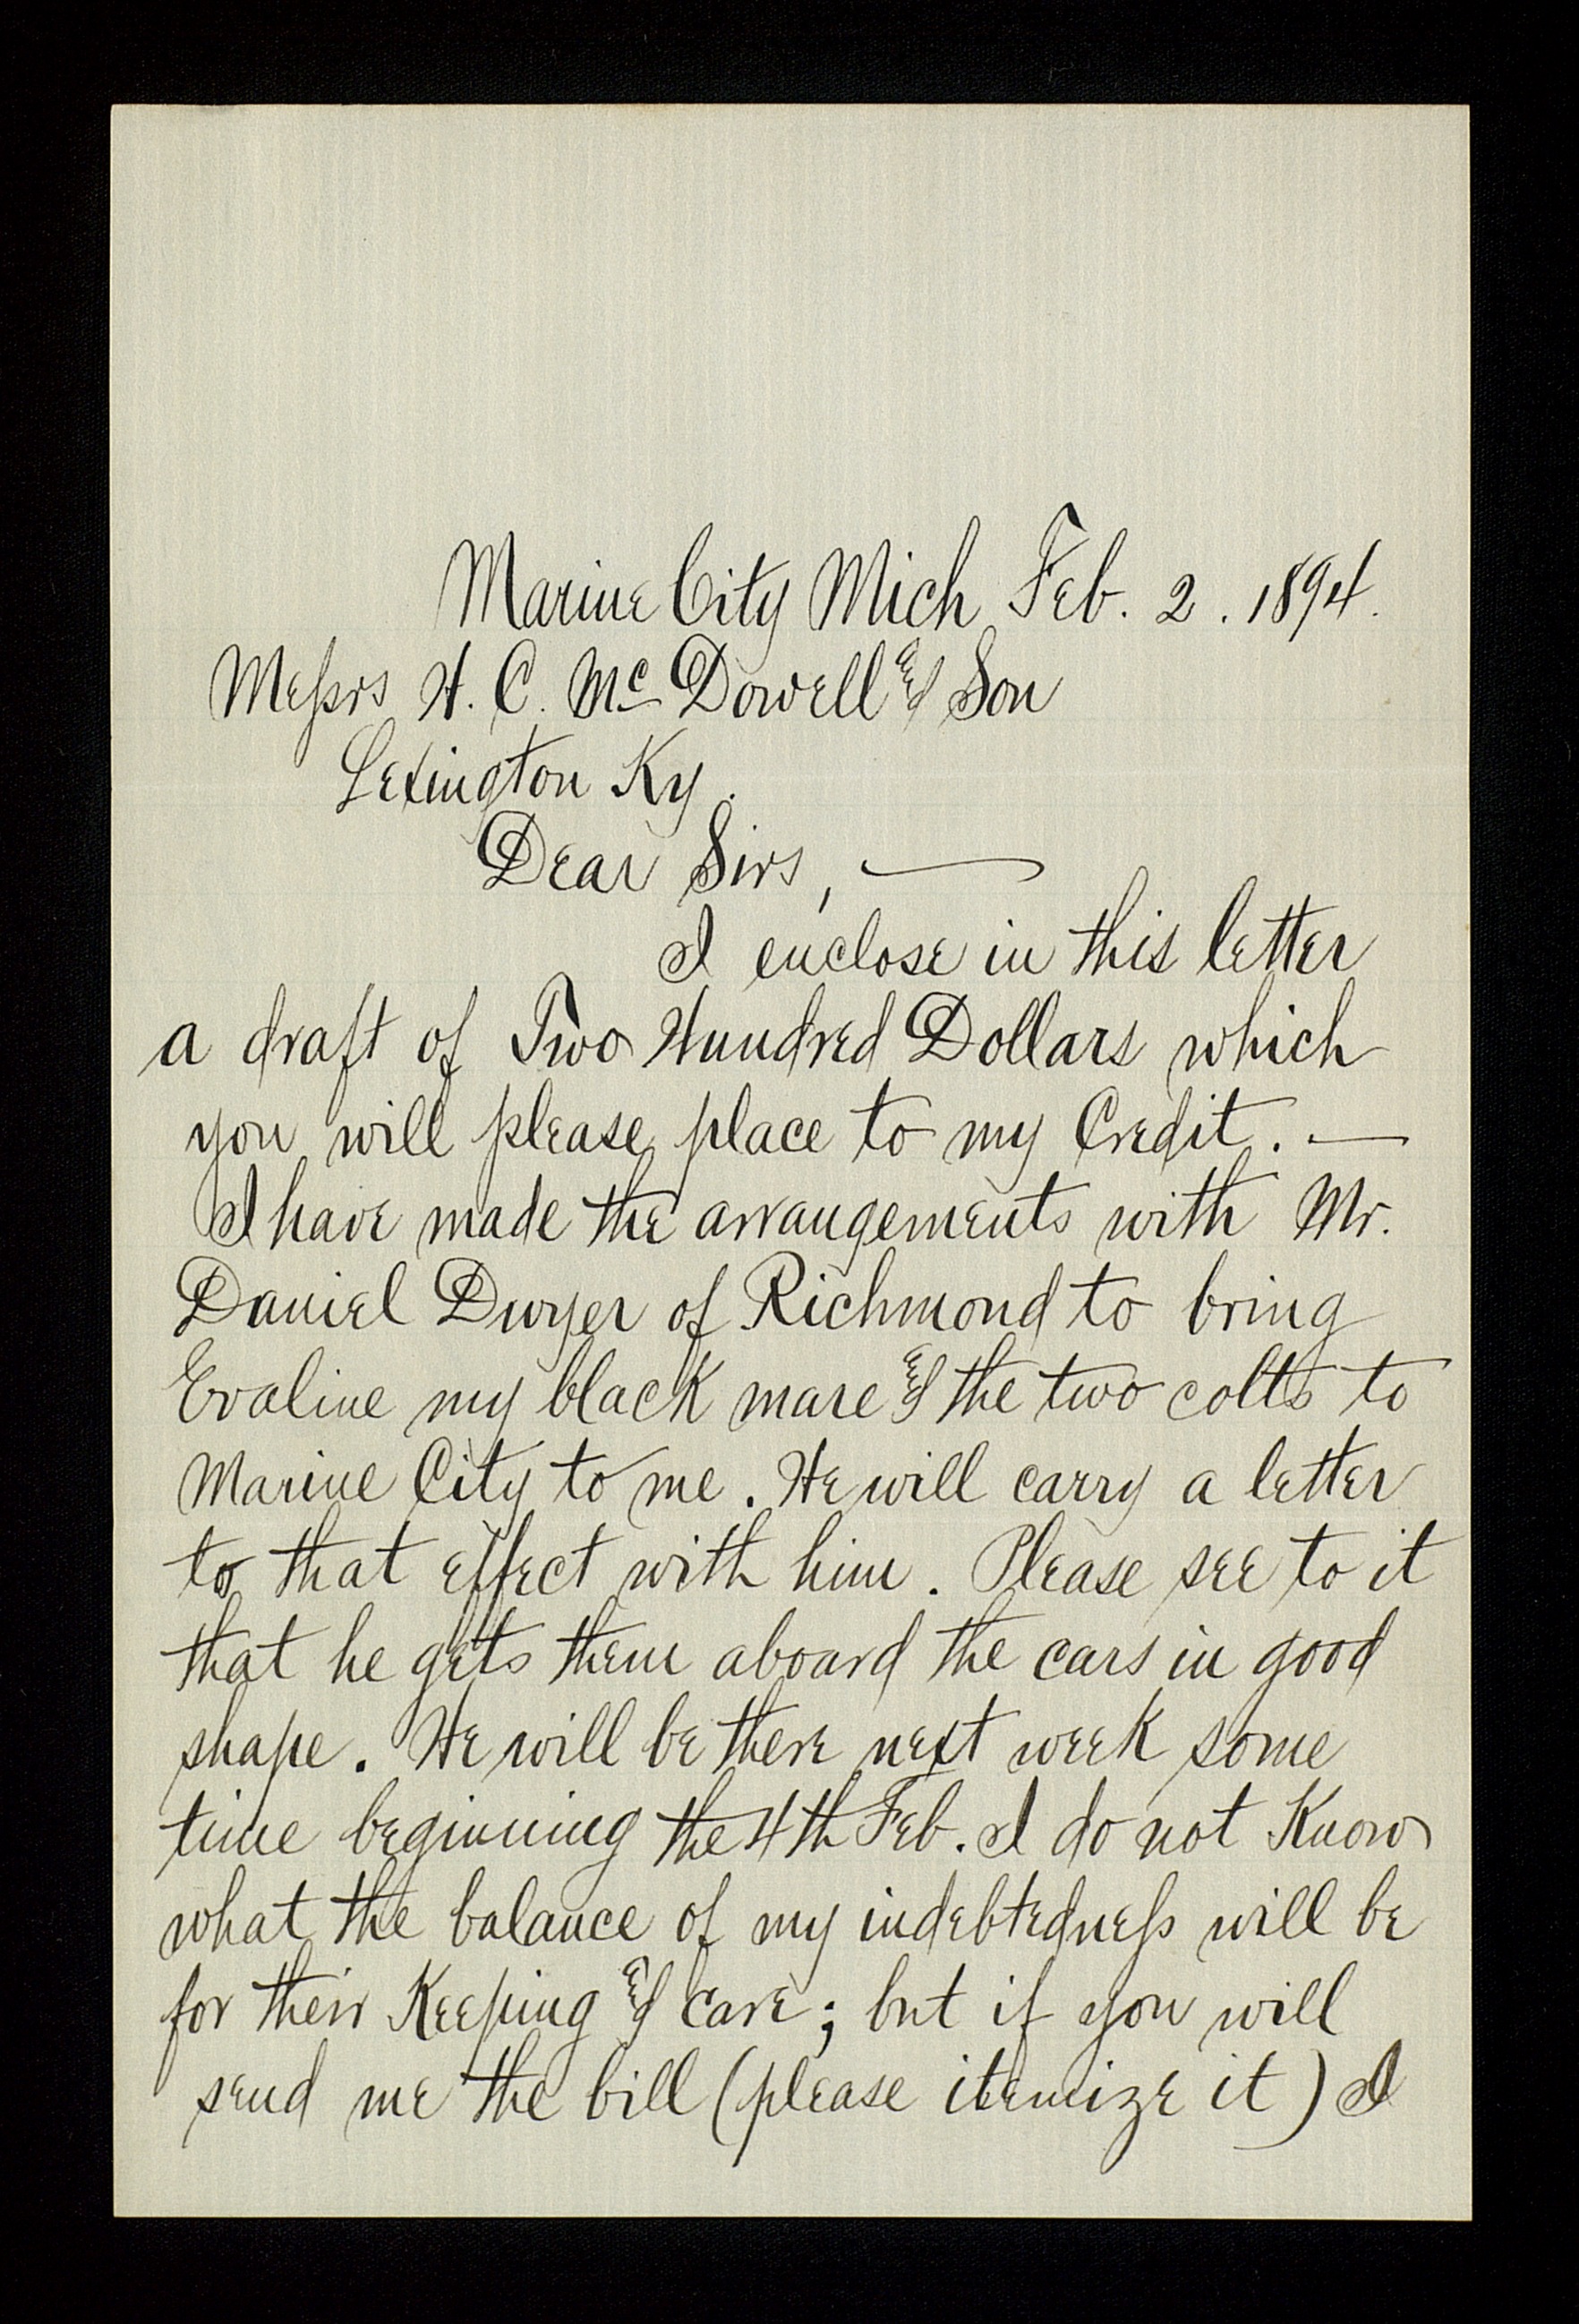 Marine City Mich Feb. 2. 1894.
Messrs H. C. McDowell & Son
Lexington Ky.
Dear Sirs, —
I enclose in this letter
a draft of Two Hundred Dollars which
you will please place to my Credit. —
I have made the arrangements with Mr.
Daniel Dwyer of Richmond to bring
Evaline my black mare & the two colts to
Marine City to me. He will carry a letter
to that effect with him. Please see to it
that he gets them aboard the cars in good
shape. He will be there next week some
time beginning the 4th Feb. I do not Know
what the balance of my indebtedness will be
for their Keeping & Care; but if you will
send me the bill (please itemize it) I